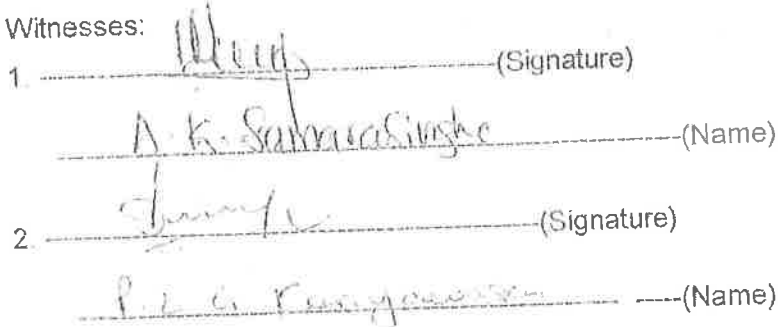 Witnesses:
1. (Signature)
A. K. Samarasinghe (Name)
2. (Signature)
P. L. G. (Name)